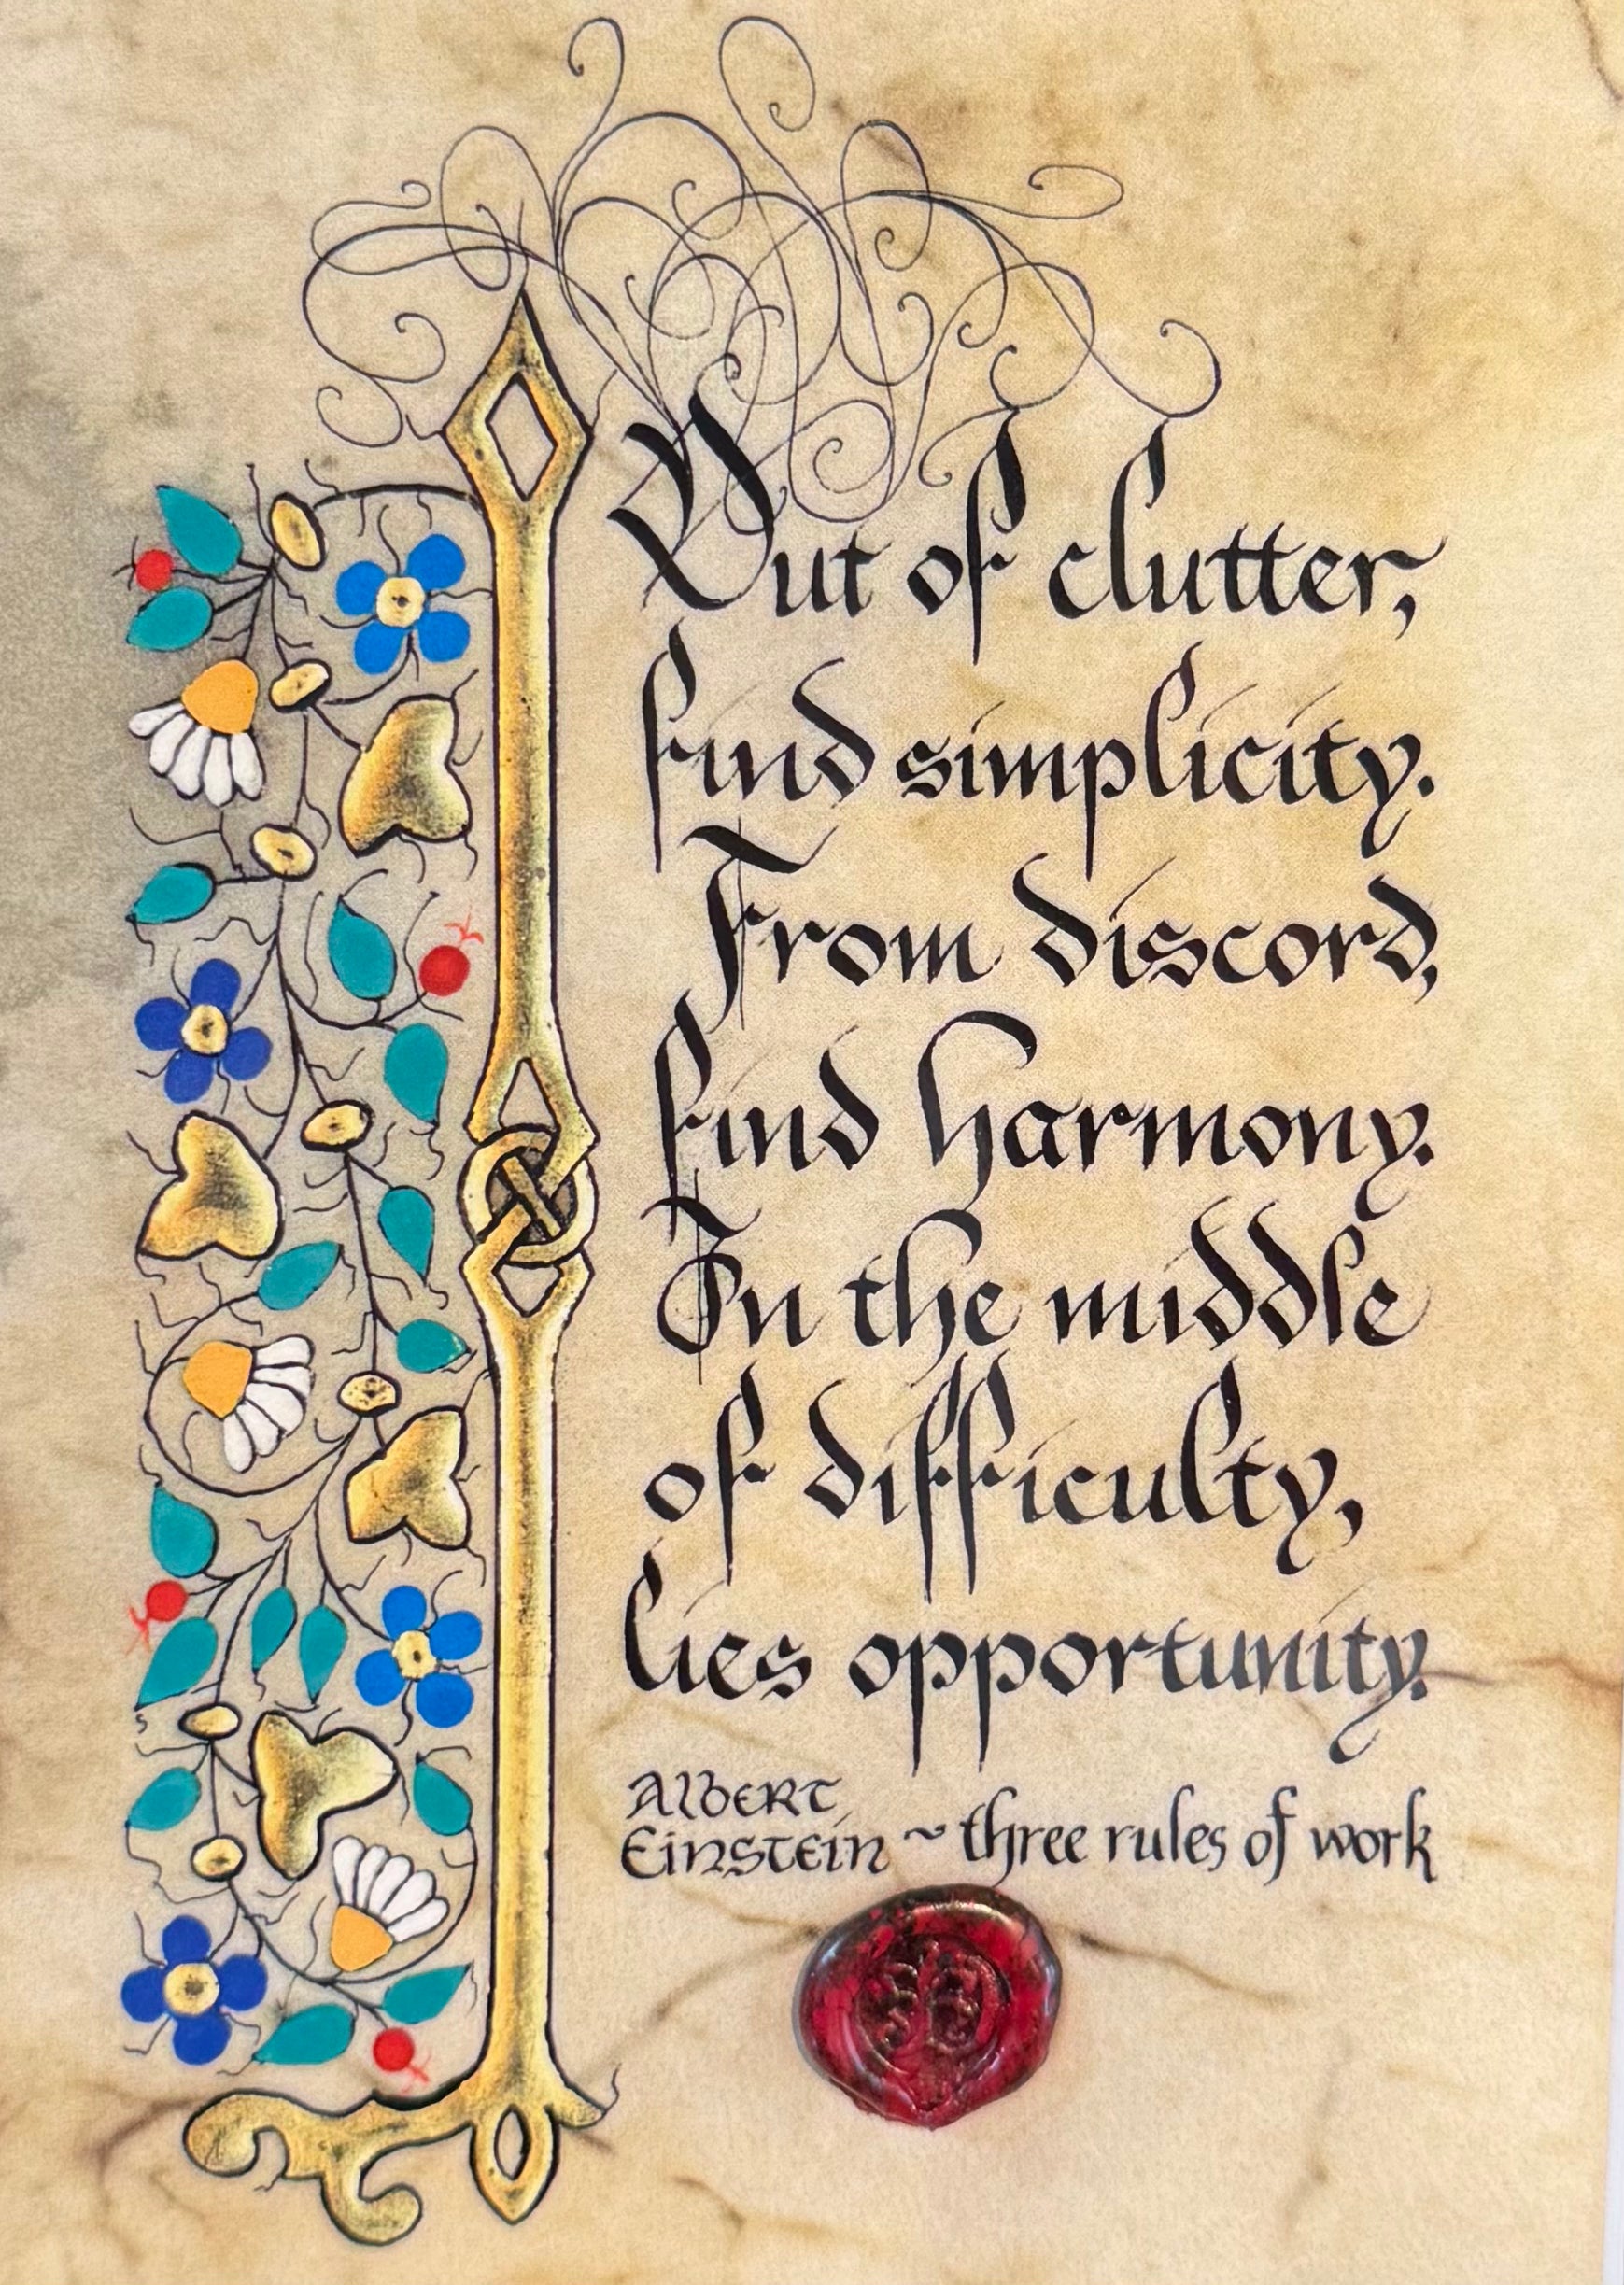 Out of clutter,
find simplicity.
From discord,
find harmony.
In the middle
of difficulty,
lies opportunity.
Albert
Einstein ~ three rules of work